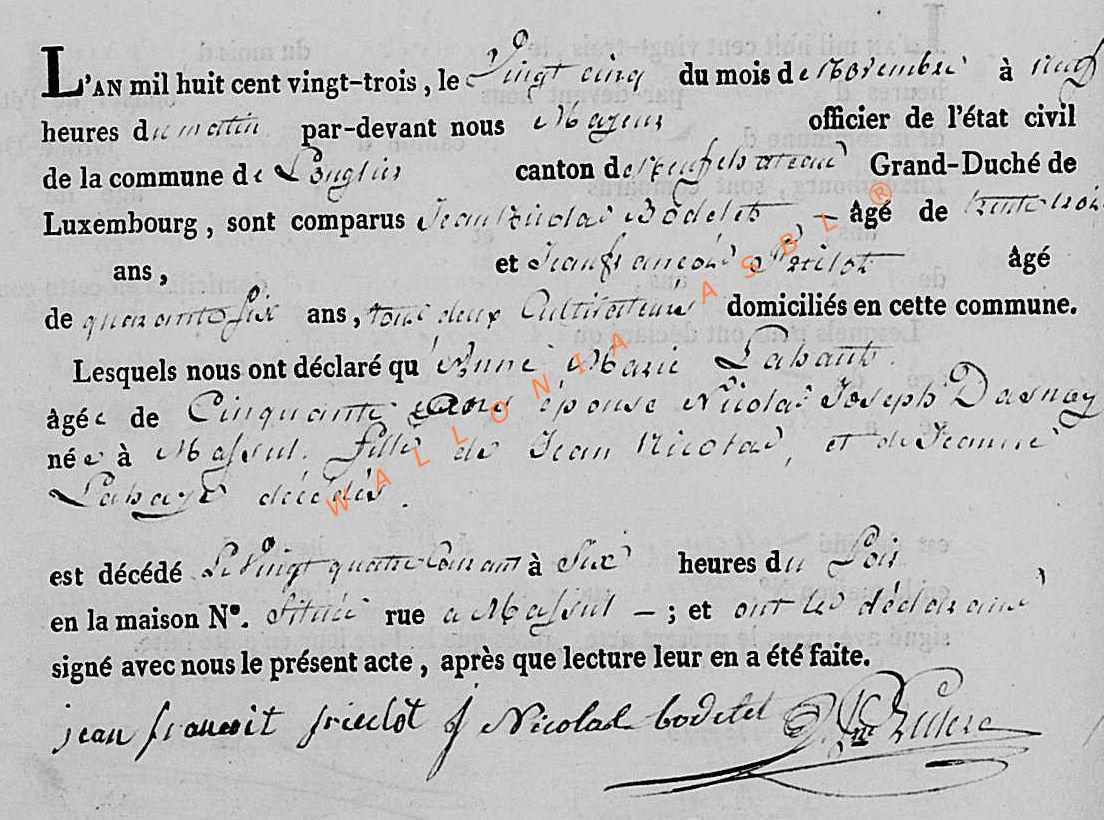 L'AN mil huit cent vingt-trois, le Vingt cinq du mois de Novembre à neuf
heures du matin par-devant nous officier de l'état civil
de la commune de Longlier canton de Neufchateau Grand-Duché de
Luxembourg, sont comparus Jean Nicolas Bodelet — âgé de trente trois
ans, et Jean françois âgé
de quarante six ans, tous deux Cultivateurs domiciliés en cette commune.
Lesquels nous ont déclaré qu'Anne Marie Labante
âgée de Cinquante ans épouse Nicolas Joseph Dasnoy
née à Massul, fille de Jean Nicolas, et de Jeanne
décédés.
est décédé Le Vingt quatre Courant à Six heures du Soir
en la maison N°. située rue a Massul — ; et ont les déclarans
signé avec nous le présent acte, après que lecture leur en a été faite.
jean francoit j Nicolas bodelet
WALLONIA ASBL ®